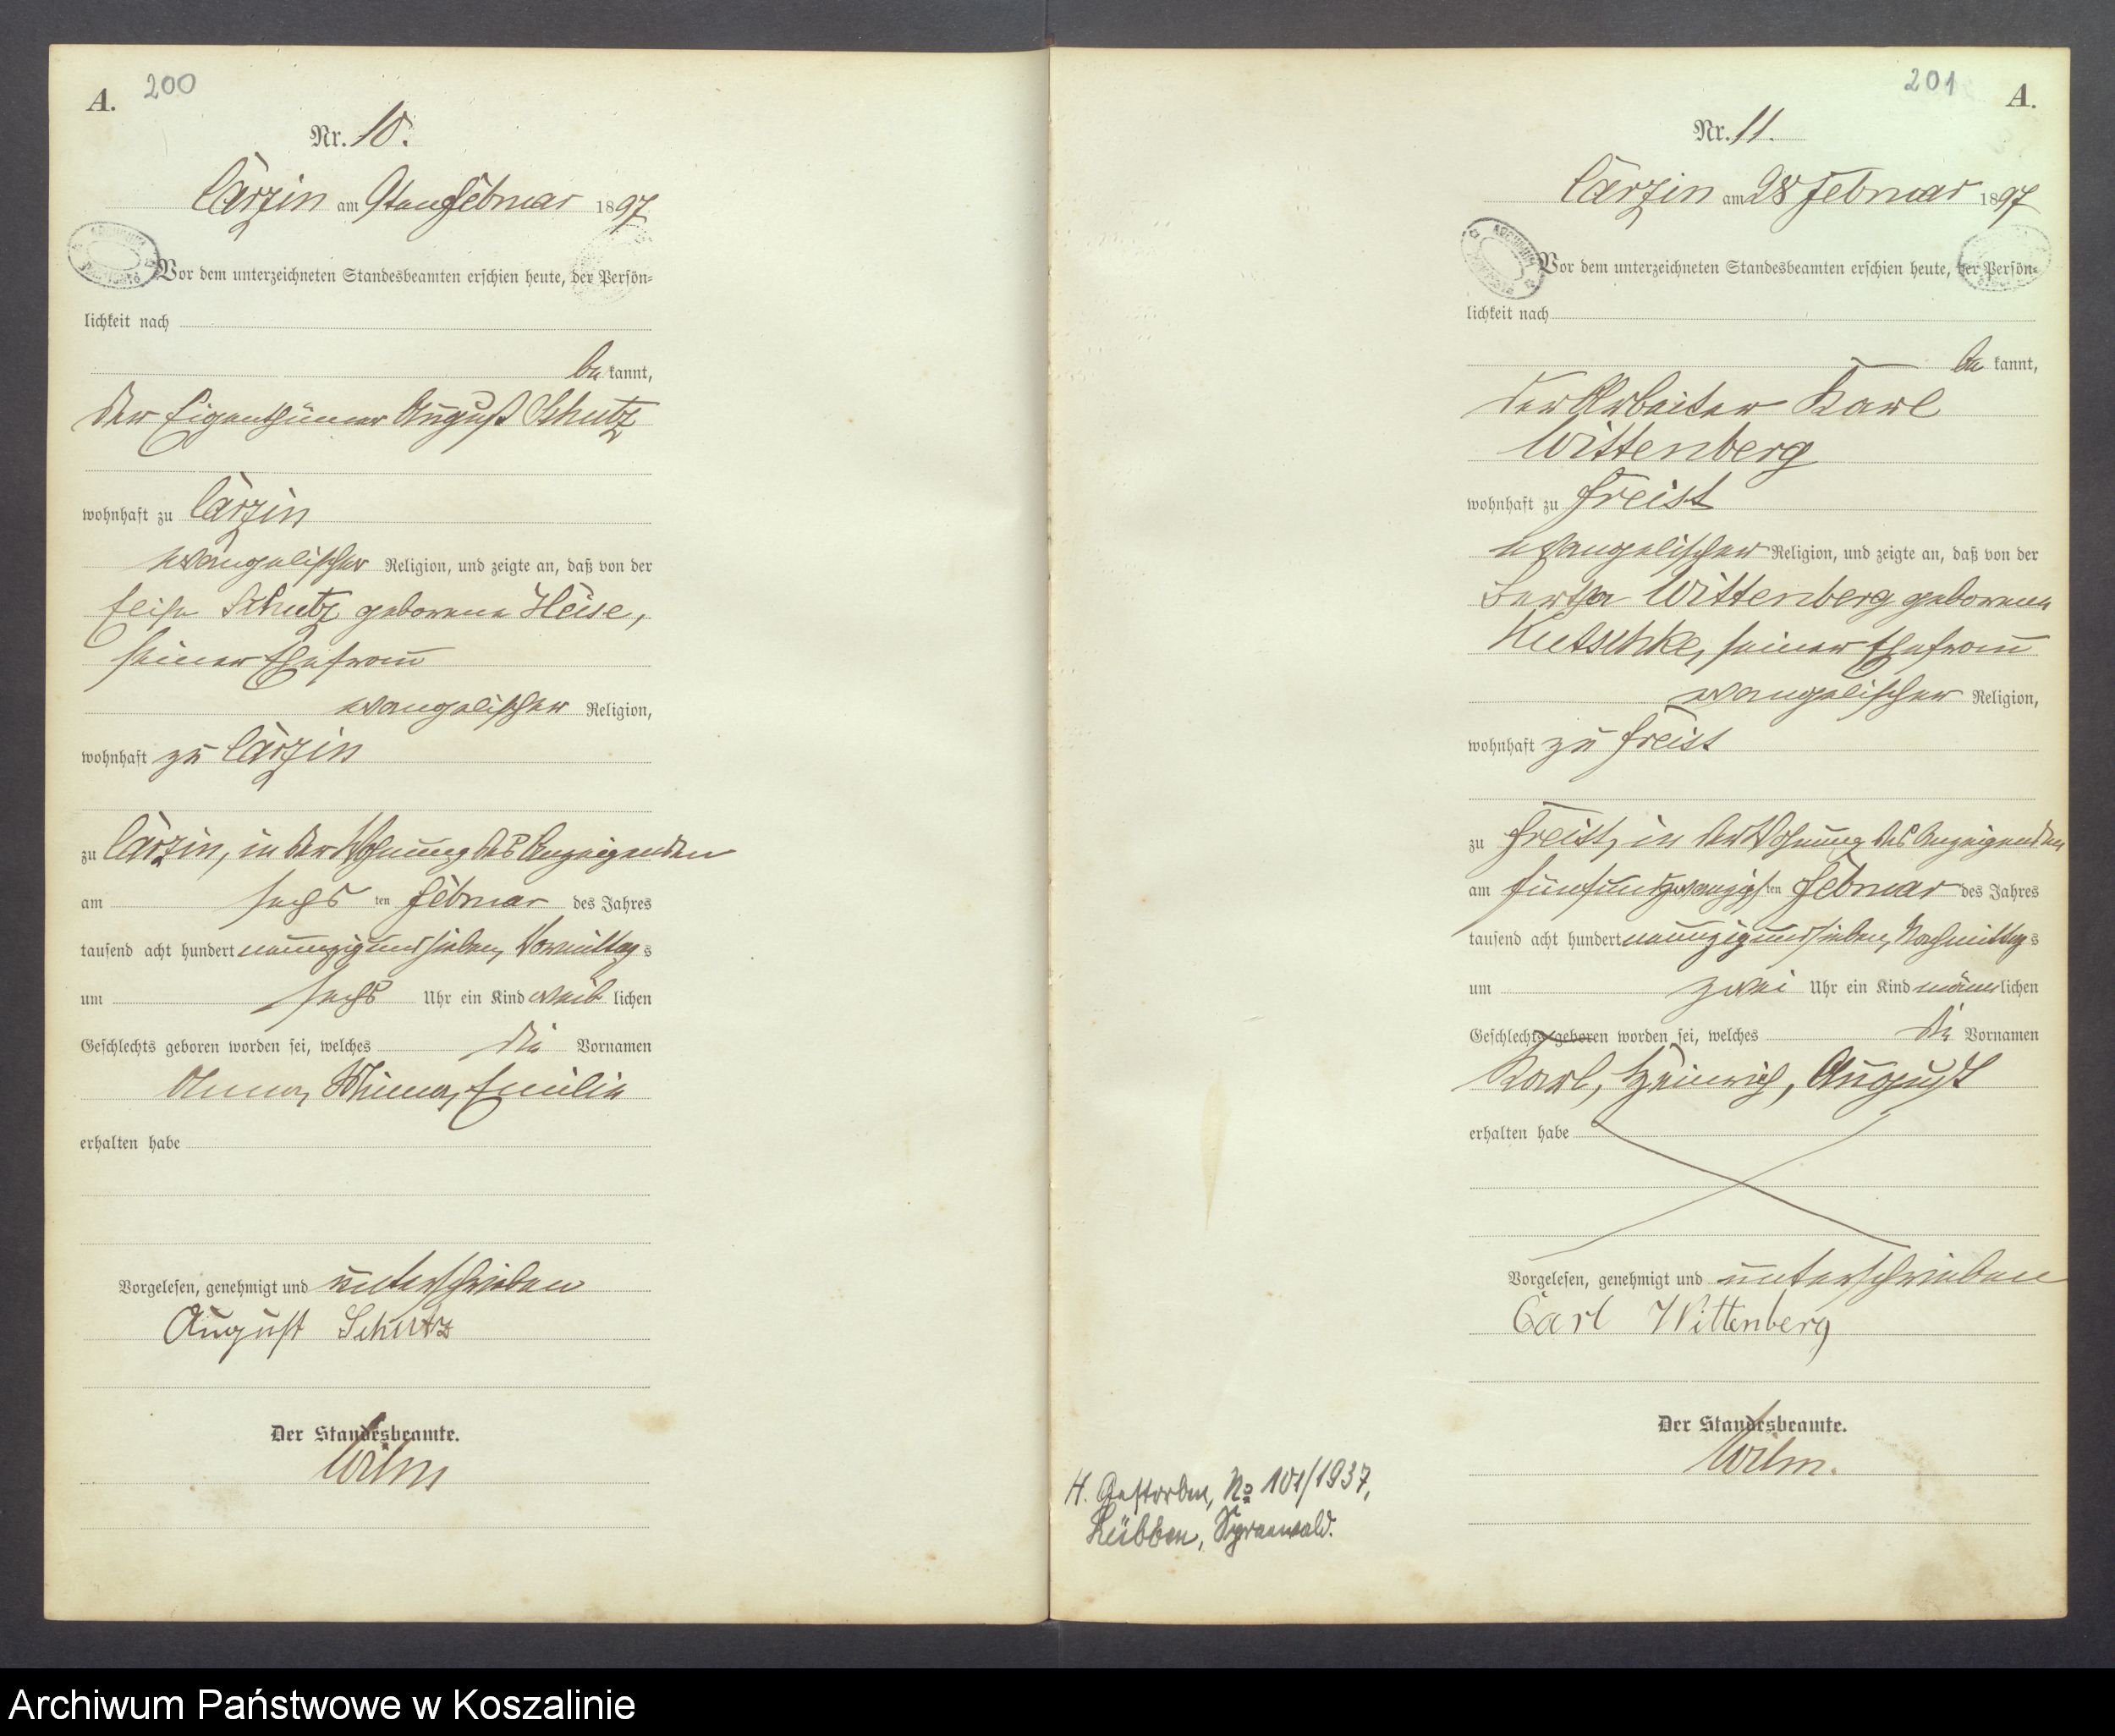 A. 200
Nr. 10.
Carzin am 9ten Februar 1897
Vor dem unterzeichneten Standesbeamten erschien heute, der Persön-
lichkeit nach
be kannt,
der Eigenthümer August Schutz
wohnhaft zu Carzin
evangelischer Religion, und zeigte an, daß von der
Elise Schutz geborene Heise,
seiner Ehefrau
evangelischer Religion,
wohnhaft zu Carzin
zu Carzin, in der Wohnung des Anzeigenden
am sechs ten Februar des Jahres
tausend acht hundert neunzig und sieben, Vormittag s
um sechs Uhr ein Kind weib lichen
Geschlechts geboren worden sei, welches die Vornamen
Anna, Minna, Emilie
erhalten habe
Vorgelesen, genehmigt und unterschrieben
August Schutz
Der Standesbeamte.
Wilm
201 A.
Nr. 11.
Carzin am 28 Februar 1897
Vor dem unterzeichneten Standesbeamten erschien heute, der Persön-
lichkeit nach
be kannt,
der Arbeiter Karl
Wittenberg
wohnhaft zu Freist
evangelischer Religion, und zeigte an, daß von der
Bertha Wittenberg geborene
Kutschke, seiner Ehefrau
evangelischer Religion,
wohnhaft zu Freist
zu Freist, in der Wohnung des Anzeigenden
am fünfundzwanzigs ten Februar des Jahres
tausend acht hundert neunzig und sieben, Nachmittag s
um zwei Uhr ein Kind männ lichen
Geschlechts geboren worden sei, welches die Vornamen
Karl, Heinrich, August
erhalten habe
Vorgelesen, genehmigt und unterschrieben
Carl Wittenberg
Der Standesbeamte.
Wilm.
H. Gestorben, No 101/1937,
Lübben, Spreewald.
Archiwum Państwowe w Koszalinie